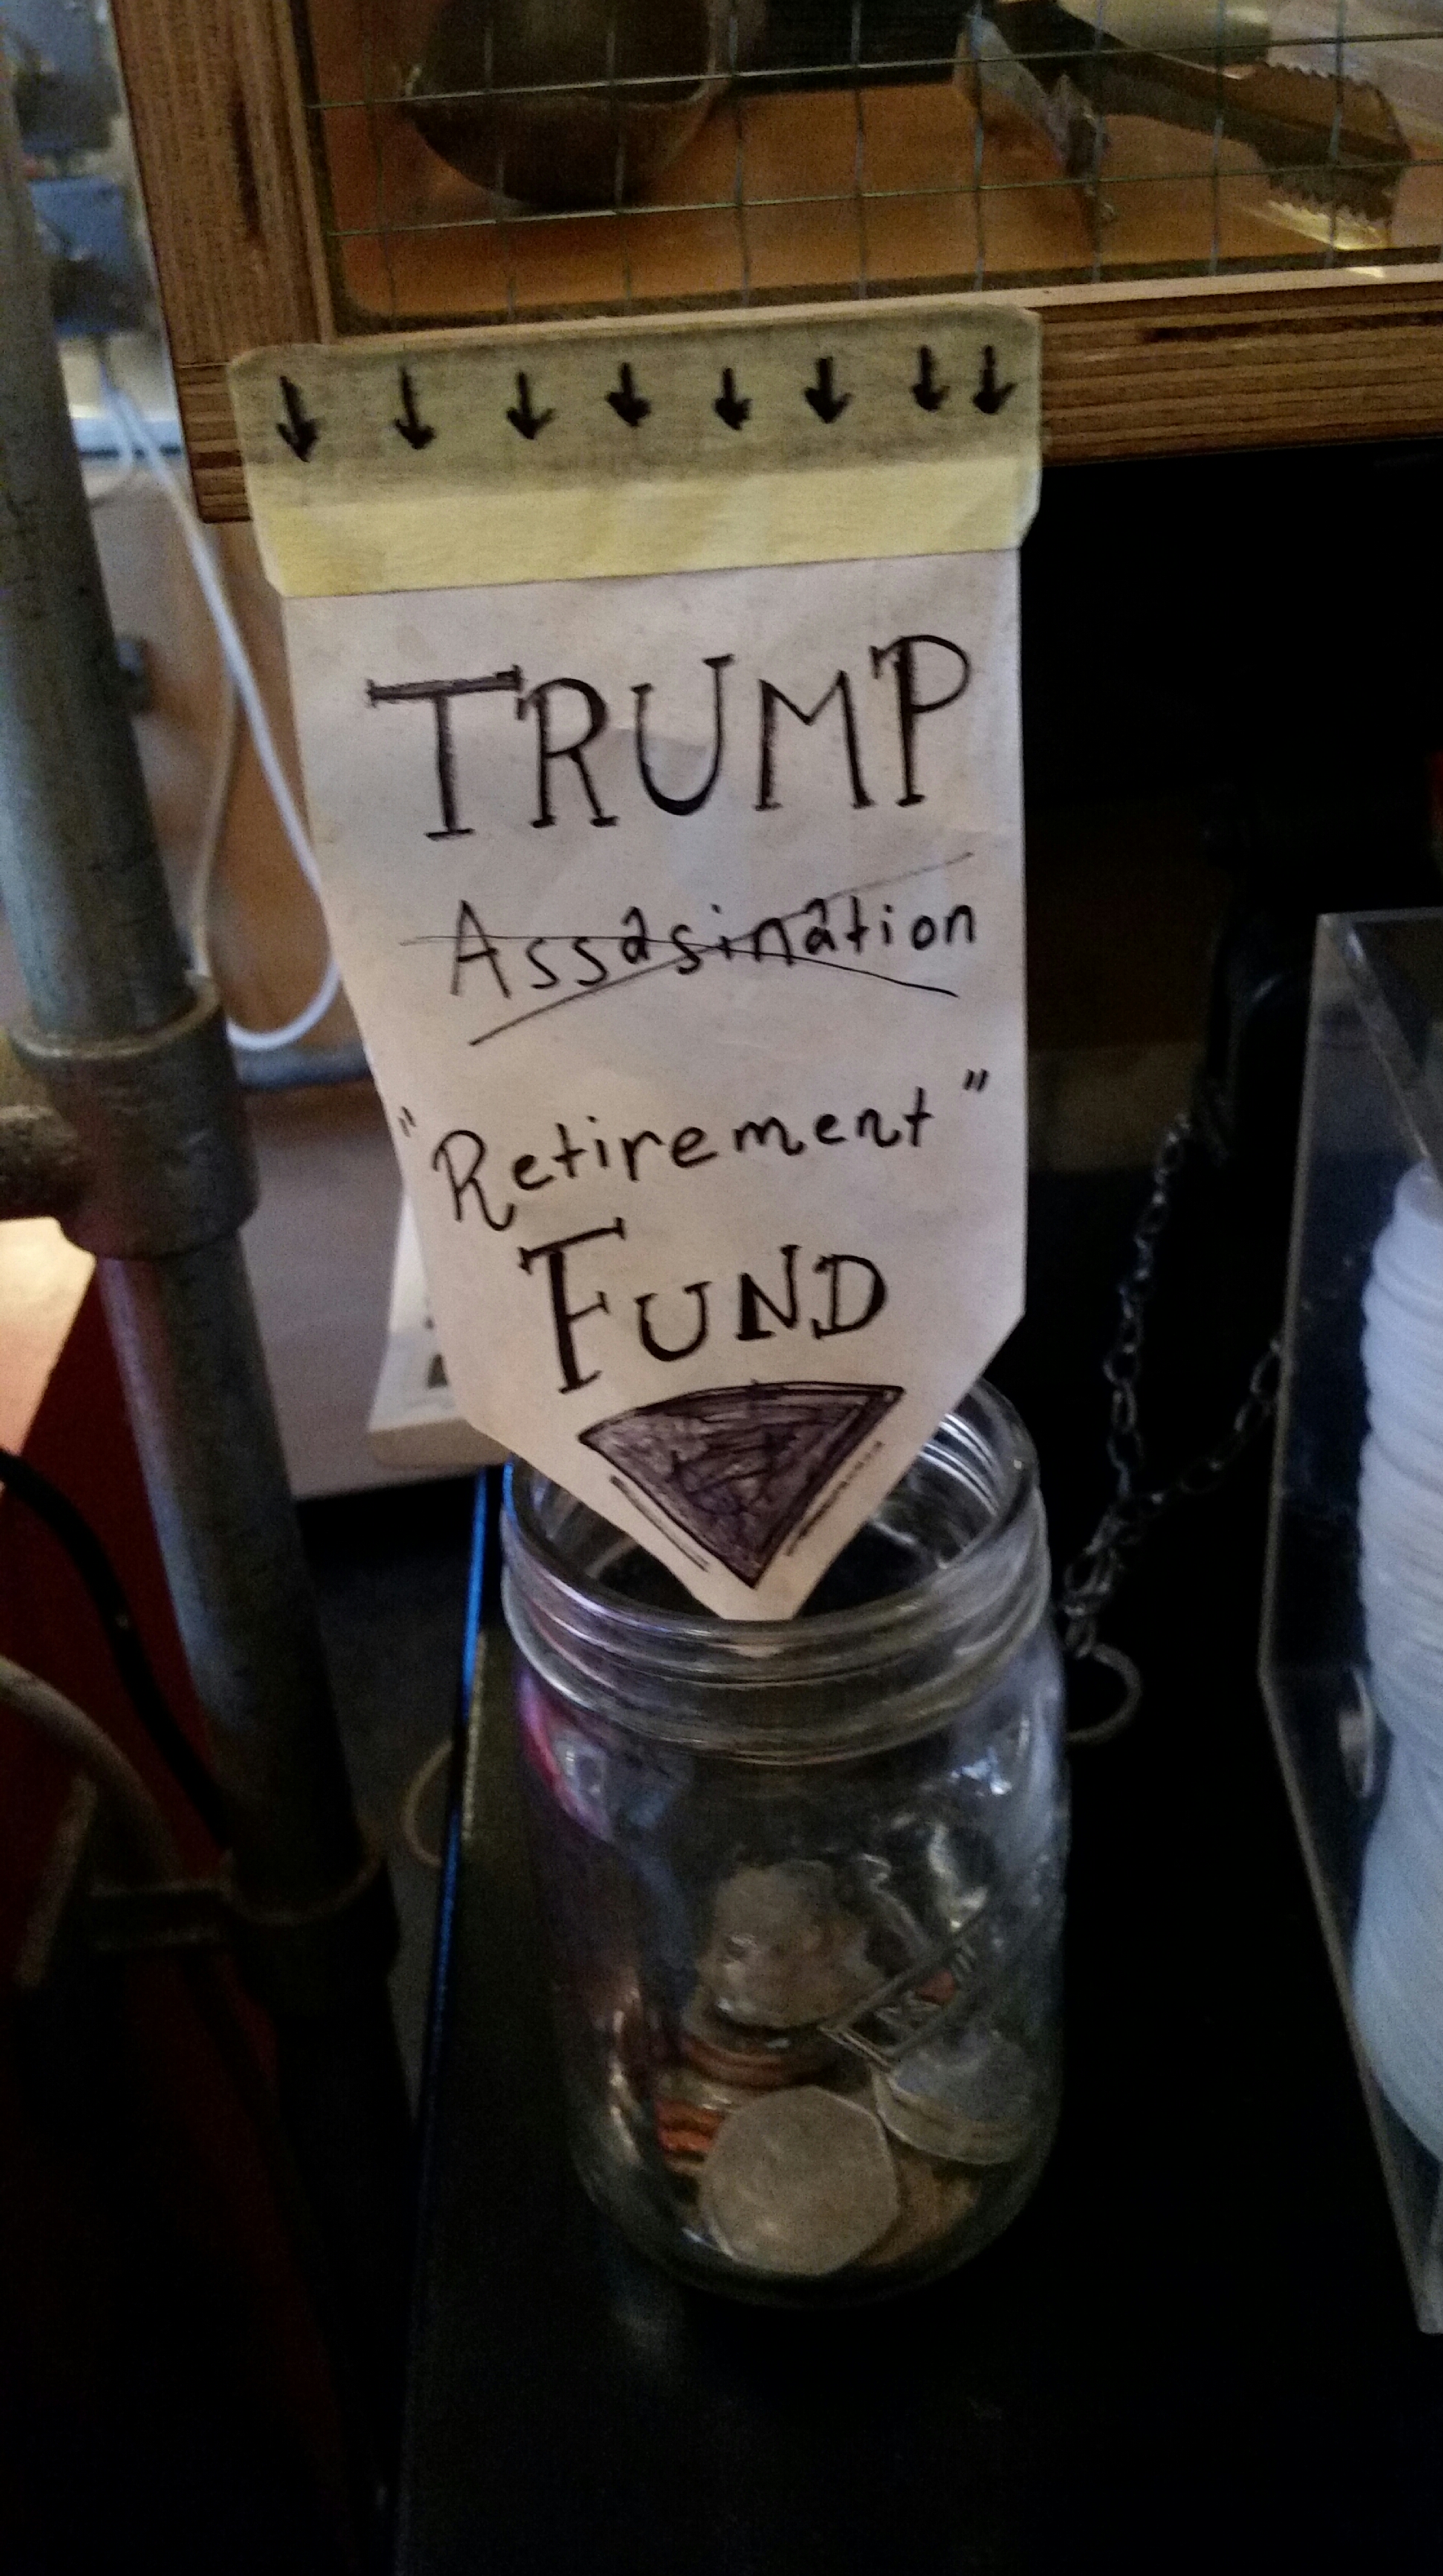 TRUMP
Assasination
"Retirement"
FUND